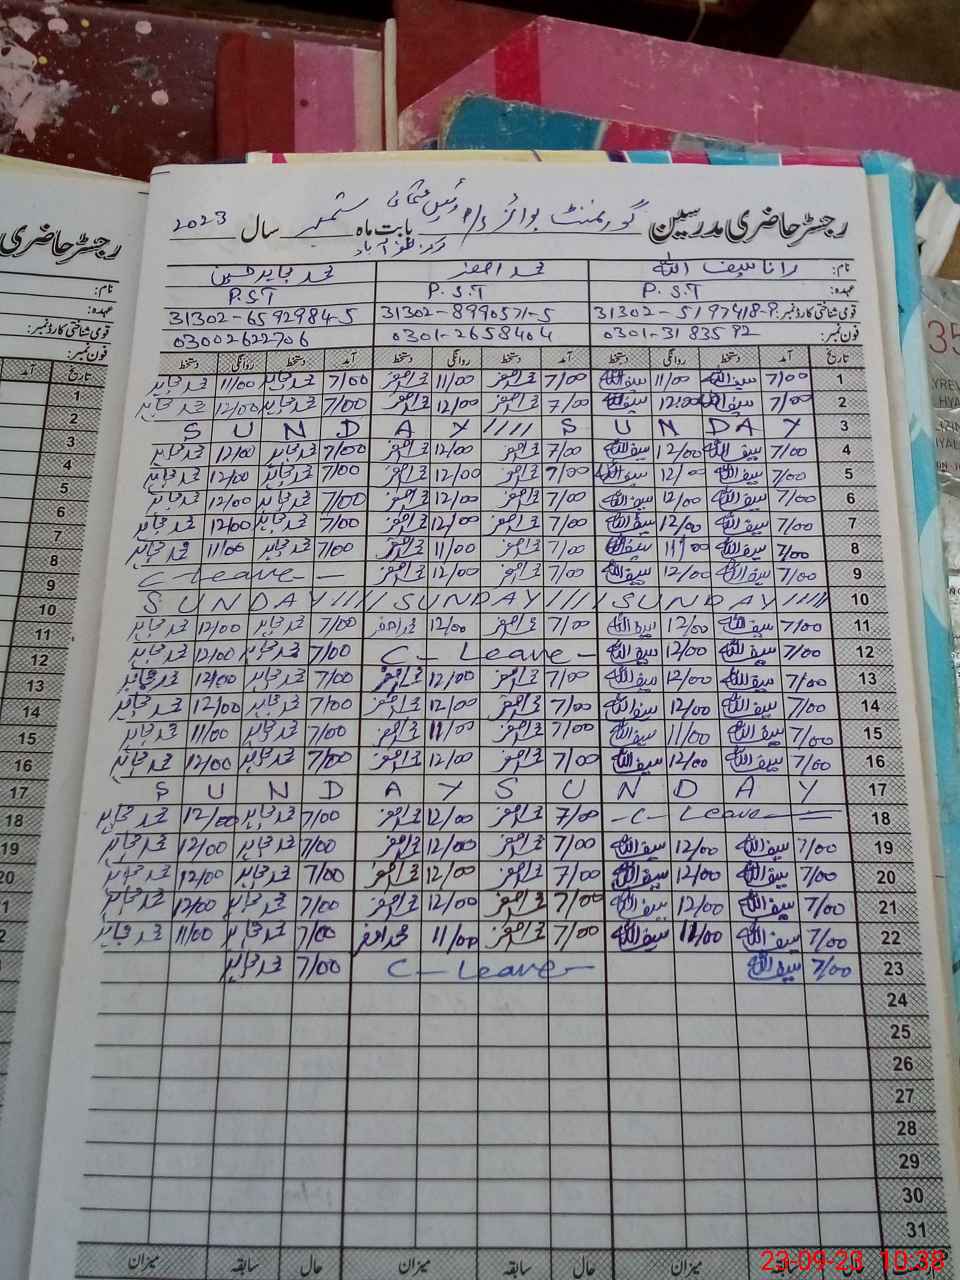 رجسٹر حاضری مدرسین گورنمنٹ بوائز بابت ماہ ستمبر سال 2023
نام: رانا سیف اللہ محمد اصغر محمد جابر حسین
عہدہ: P.S.T P.S.T P.S.T
قومی شناختی کارڈ نمبر: 31302-5197418-9 31302-8990571-5 31302-6592984-5
فون نمبر: 0301-3183592 0301-2658404 03002622706
تاریخ آمد دستخط روانگی دستخط آمد دستخط روانگی دستخط آمد دستخط روانگی دستخط
1 7/00 سیف اللہ 11/00 سیف اللہ 7/00 محمد اصغر 11/00 محمد اصغر 7/00 محمد جابر 11/00 محمد جابر
2 7/00 سیف اللہ 12:00 سیف اللہ 7/00 محمد اصغر 12/00 محمد اصغر 7/00 محمد جابر 12/00 محمد جابر
3 S U N D A Y ///// S U N D A Y
4 7/00 سیف اللہ 12/00 سیف اللہ 7/00 محمد اصغر 12/00 محمد اصغر 7/00 محمد جابر 12/00 محمد جابر
5 7/00 سیف اللہ 12/00 سیف اللہ 7/00 محمد اصغر 12/00 محمد اصغر 7/00 محمد جابر 12/00 محمد جابر
6 7/00 سیف اللہ 12/00 سیف اللہ 7/00 محمد اصغر 12/00 محمد اصغر 7/00 محمد جابر 12/00 محمد جابر
7 7/00 سیف اللہ 12/00 سیف اللہ 7/00 محمد اصغر 12/00 محمد اصغر 7/00 محمد جابر 12/00 محمد جابر
8 7/00 سیف اللہ 11/00 سیف اللہ 7/00 محمد اصغر 11/00 محمد اصغر 7/00 محمد جابر 11/00 محمد جابر
9 7/00 سیف اللہ 12/00 سیف اللہ 7/00 محمد اصغر 12/00 محمد اصغر C-Leave-
10 SUNDAY //// SUNDAY //// SUNDAY /////
11 7/00 سیف اللہ 12/00 سیف اللہ 7/00 محمد اصغر 12/00 محمد اصغر 7/00 محمد جابر 12/00 محمد جابر
12 7/00 سیف اللہ 12/00 سیف اللہ C- Leave- 7/00 محمد جابر 12/00 محمد جابر
13 7/00 سیف اللہ 12/00 سیف اللہ 7/00 محمد اصغر 12/00 محمد اصغر 7/00 محمد جابر 12/00 محمد جابر
14 7/00 سیف اللہ 12/00 سیف اللہ 7/00 محمد اصغر 12/00 محمد اصغر 7/00 محمد جابر 12/00 محمد جابر
15 7/00 سیف اللہ 11/00 سیف اللہ 7/00 محمد اصغر 11/00 محمد اصغر 7/00 محمد جابر 11/00 محمد جابر
16 7/00 سیف اللہ 12/00 سیف اللہ 7/00 محمد اصغر 12/00 محمد اصغر 7/00 محمد جابر 12/00 محمد جابر
17 S U N D A Y S U N D A Y
18 -C- Leave- 7/00 محمد اصغر 12/00 محمد اصغر 7/00 محمد جابر 12/00 محمد جابر
19 7/00 سیف اللہ 12/00 سیف اللہ 7/00 محمد اصغر 12/00 محمد اصغر 7/00 محمد جابر 12/00 محمد جابر
20 7/00 سیف اللہ 12/00 سیف اللہ 7/00 محمد اصغر 12/00 محمد اصغر 7/00 محمد جابر 12/00 محمد جابر
21 7/00 سیف اللہ 12/00 سیف اللہ 7/00 محمد اصغر 12/00 محمد اصغر 7/00 محمد جابر 12/00 محمد جابر
22 7/00 سیف اللہ 11/00 سیف اللہ 7/00 محمد اصغر 11/00 محمد اصغر 7/00 محمد جابر 11/00 محمد جابر
23 7/00 سیف اللہ C-Leave- 7/00 محمد جابر
24
25
26
27
28
29
30
31
سابقہ میزان حال سابقہ میزان حال سابقہ میزان
23-09-23 10:38
رجسٹر حاضری
نام:
عہدہ:
قومی شناختی کارڈ نمبر:
فون نمبر:
تاریخ آمد
1
2
3
4
5
6
7
8
9
10
11
12
13
14
15
16
17
18
19
20
35